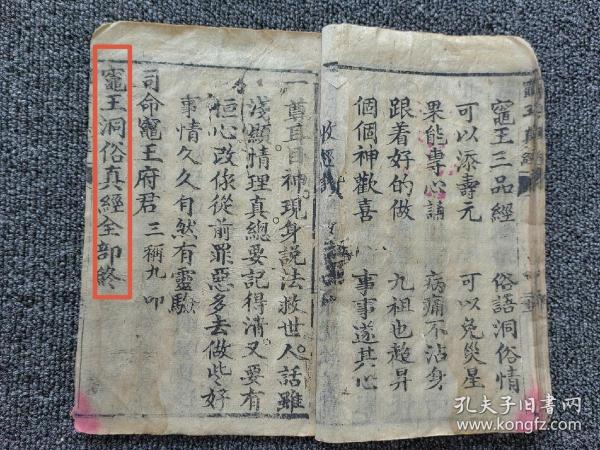 竈王三品經　俗語洞俗情
可以添壽元　可以免災星
果能專心誦　病痛不沾身
跟着好的做　九祖也超昇
個個神歡喜　事事遂其心
收經讚
一尊耳目神現身說法救世人話雖
淺顯情理真總要記得清又要有
恒心改你從前罪惡多去做些好
事情久久自然有靈驗
司命竈王府君 三稱九叩
竈王洞俗真經全部終
孔夫子旧书网